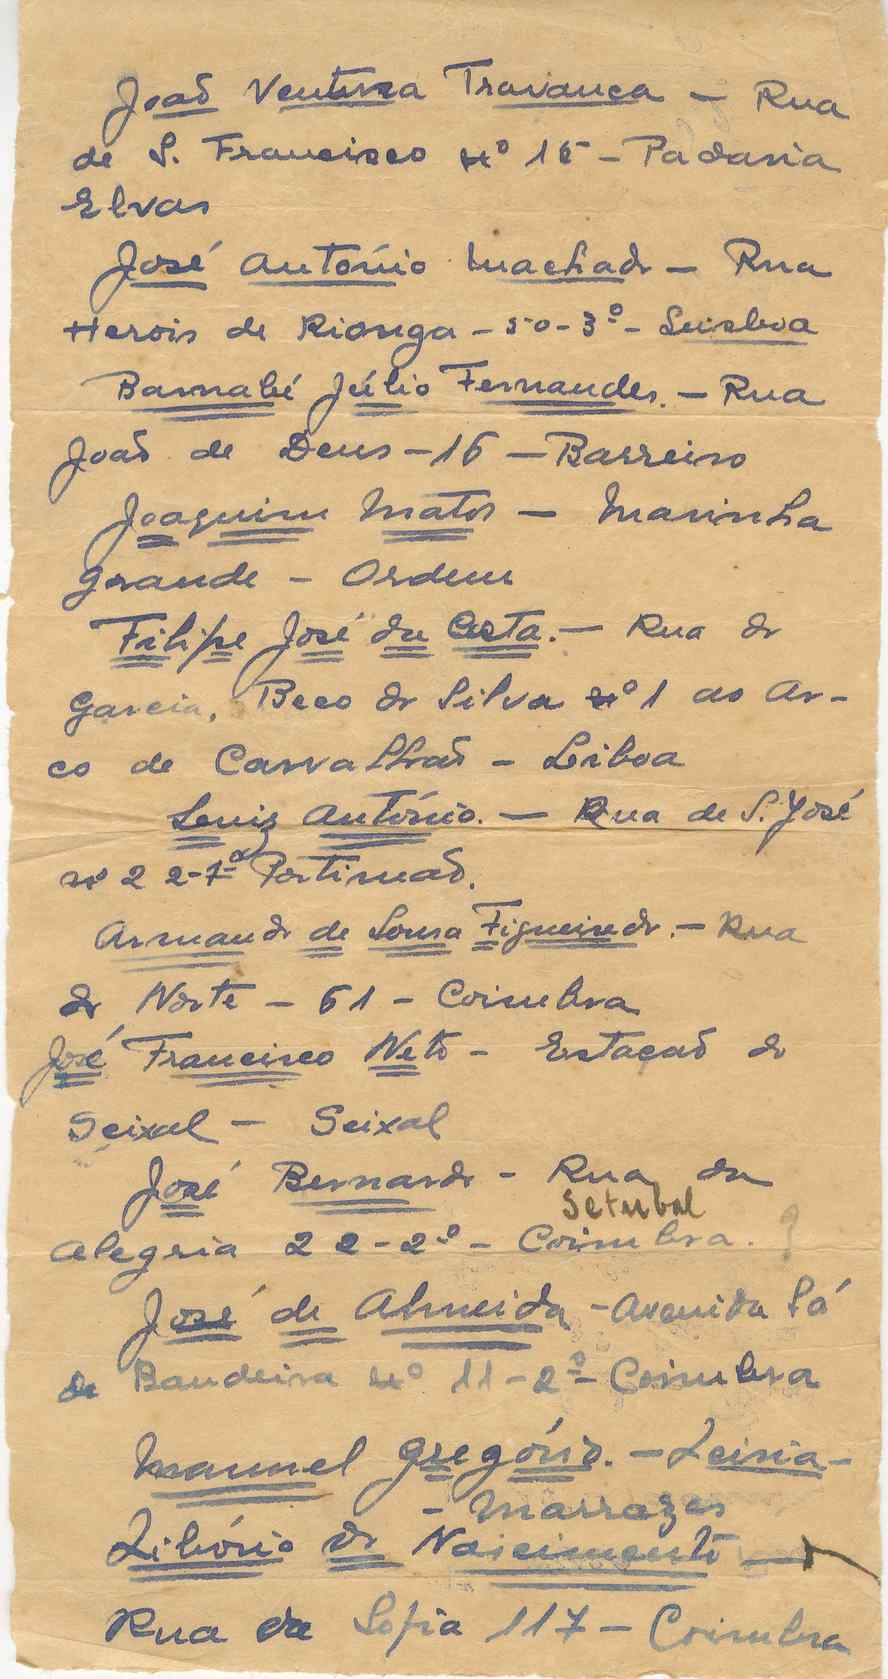 João Ventura Travanca - Rua
de S. Francisco nº 15 - Padaria
Elvas
José António Machado - Rua
Herois de Kionga - 50-3º - Luisboa
Barnabé Júlio Fernandes. - Rua
João de Deus - 16 - Barreiro
Joaquim Matos - Marinha
grande - Ordem
Filipe José da Costa. - Rua do
Garcia, Beco do Silva nº 1 ao Ar-
co de Carvalhão - Lisboa
Luis António. - Rua de S. José
nº 22-1º Portimão.
Armando de Sousa Figueiredo. - Rua
do Norte - 61 - Coimbra
José Francisco Neto - Estação do
Seixal - Seixal
José Bernardo - Rua da
Setubal
Alegria 22-2º - Coimbra. ?
José de Almeida - Avenida Sá
da Bandeira nº 11-2º - Coimbra
Manuel Gregório. - Leiria -
- Marrazes
Libório do Nascimento -
Rua da Sofia 117 - Coimbra